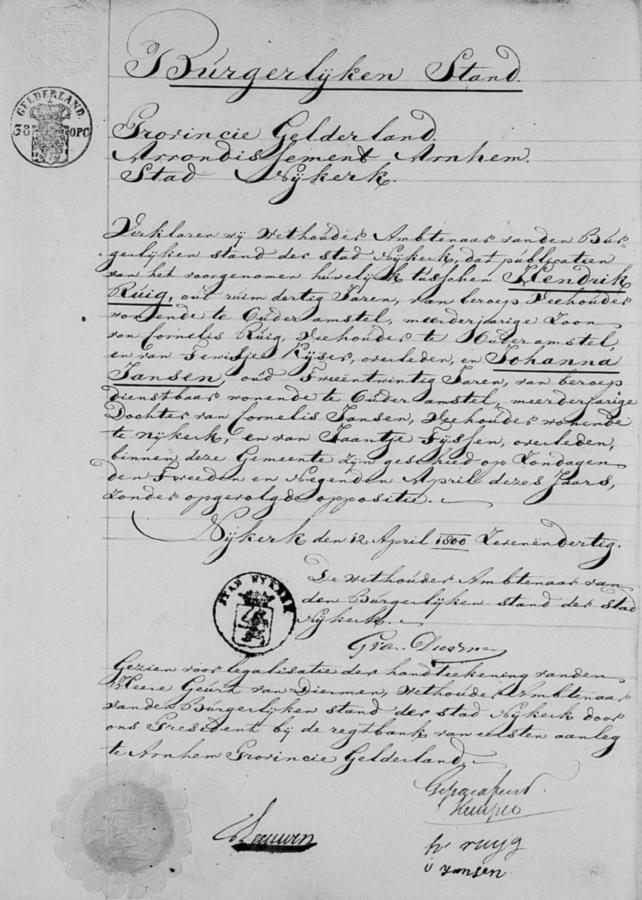 Burgerlijken Stand.
GELDERLAND.
38 OPC
Provincie Gelderland
Arrondissement Arnhem.
Stad Nijkerk.
Verklaren wij Wethouder Ambtenaar van den Bur-
gerlijken stand der stad Nijkerk, dat publicatien
van het voorgenomen huwelijk tusschen Hendrik
Ruig, oud ruim dertig Jaren, van beroep Veehouder
wonende te Ouder amstel, meerderjarige Zoon
van Cornelis Ruig, Veehouder te Ouder amstel,
en van Kyser, overleden, en Johanna
Jansen, oud Tweeentwintig Jaren, van beroep
dienstbaar wonende te Ouder amstel, meerderjarige
Dochter van Cornelis Jansen, Veehouder wonende
te Nijkerk, en van Jaantje Tijssen, overleden,
binnen deze Gemeente zijn geschied op Zondagen
den Tweeden en Negenden April dezes Jaars,
zonder opgevolgde oppositie.
Nijkerk den 12 April 1800 Zevenendertig.
De Wethouder Ambtenaar van
den Burgerlijken stand der stad
Nijkerk.
STAD NYKERK
G van Diermen
Gezien voor legalisatie der handteekening van den
Heere Geurt van Diermen, Wethouder Ambtenaar
van den Burgerlijken stand der stad Nijkerk door
ons President bij de regtbank van eersten aanleg
te Arnhem Provincie Gelderland.
Geparafeerd
Kemper
hr ruyg
J Jansen.